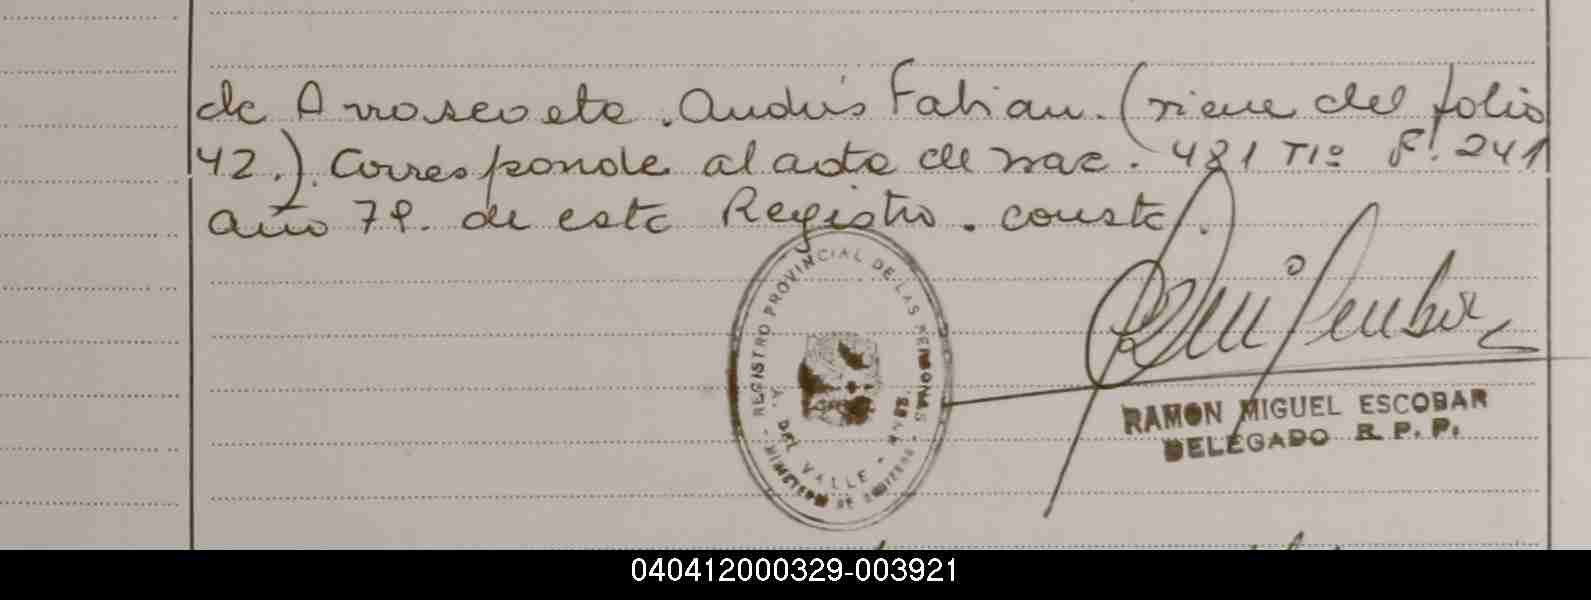 de Arroscoeta. Andrés Fabian. (viene del folio
42.). Corresponde al acta de nac. 481 T1º Fº. 241
año 79. de este Registro. conste.
REGISTRO PROVINCIAL DE LAS PERSONAS
DEL VALLE
RAMON MIGUEL ESCOBAR
DELEGADO R. P. P.
040412000329-003921